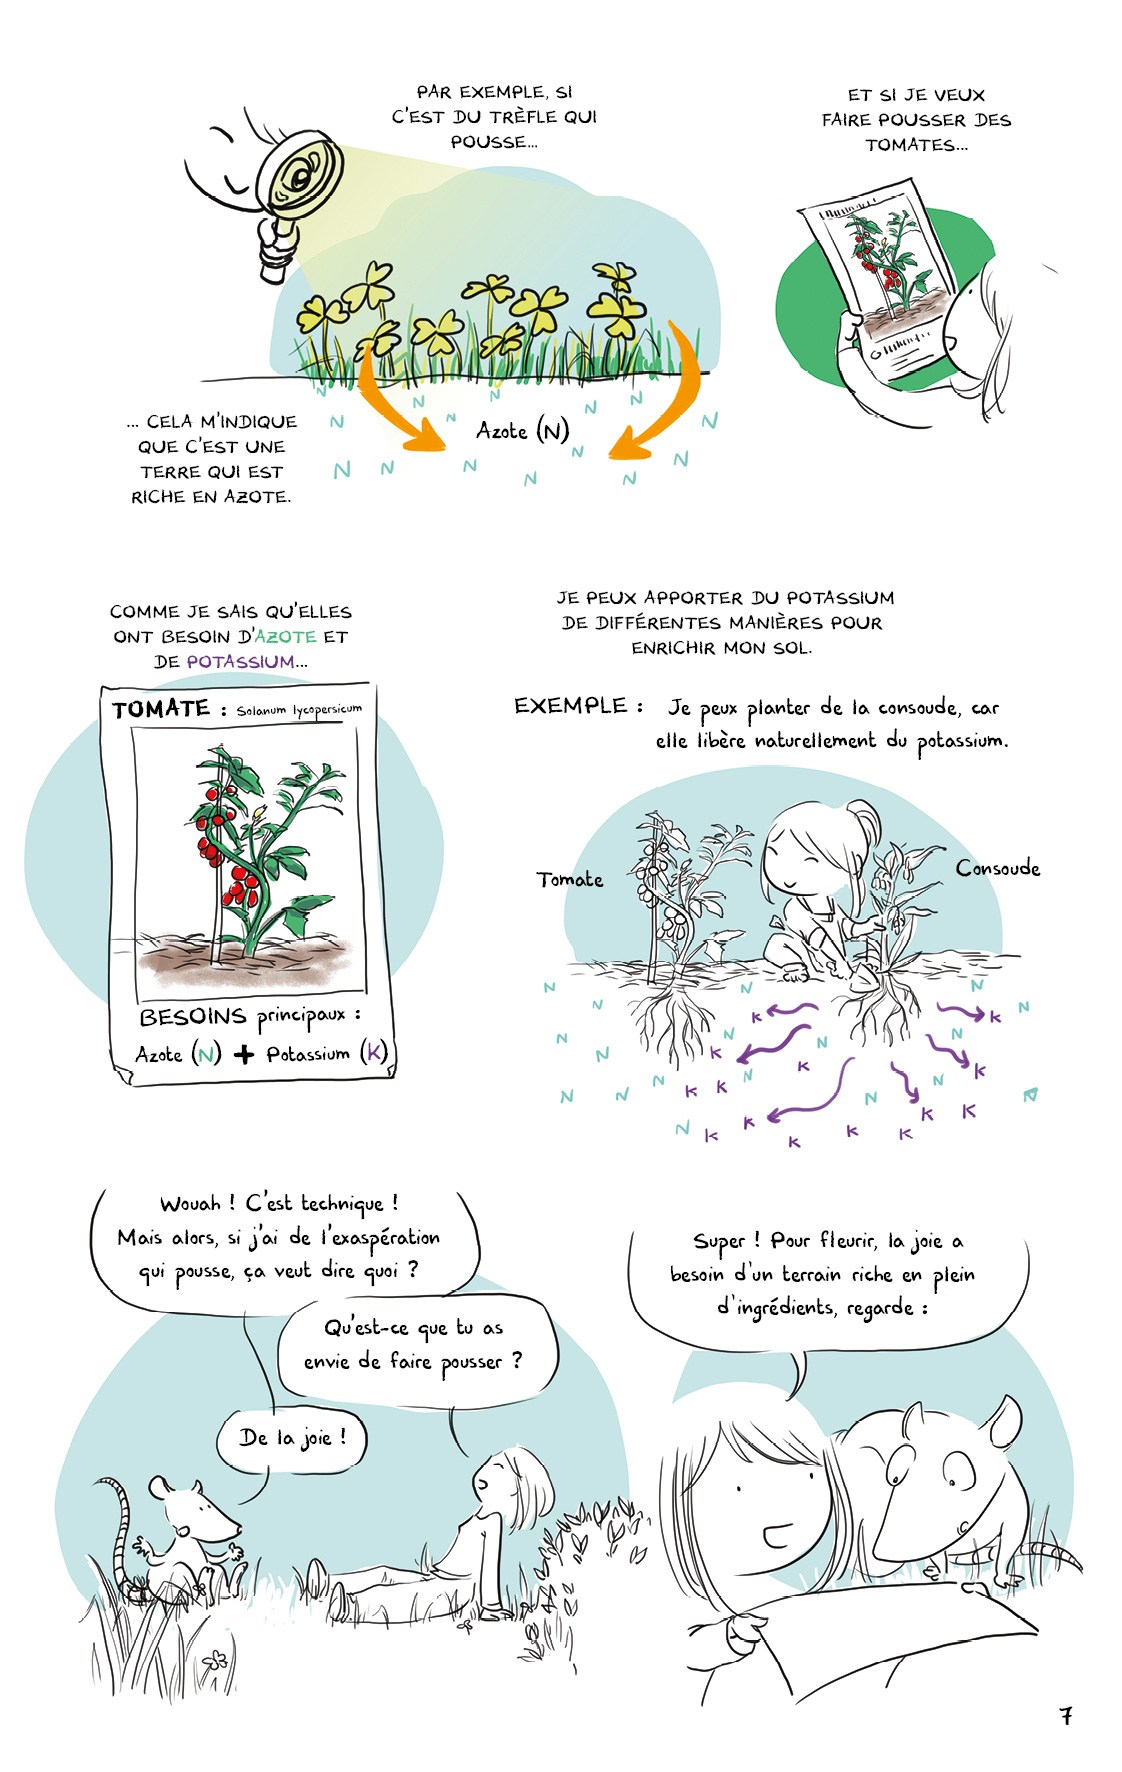 PAR EXEMPLE, SI
C'EST DU TRÈFLE QUI
POUSSE...
ET SI JE VEUX
FAIRE POUSSER DES
TOMATES...
... CELA M'INDIQUE
QUE C'EST UNE
TERRE QUI EST
RICHE EN AZOTE.
Azote (N)
COMME JE SAIS QU'ELLES
ONT BESOIN D'AZOTE ET
DE POTASSIUM...
TOMATE : Solanum lycopersicum
BESOINS principaux :
Azote (N) + Potassium (K)
JE PEUX APPORTER DU POTASSIUM
DE DIFFÉRENTES MANIÈRES POUR
ENRICHIR MON SOL.
EXEMPLE : Je peux planter de la consoude, car
elle libère naturellement du potassium.
Tomate
Consoude
Wouah ! C'est technique !
Mais alors, si j'ai de l'exaspération
qui pousse, ça veut dire quoi ?
Qu'est-ce que tu as
envie de faire pousser ?
De la joie !
Super ! Pour fleurir, la joie a
besoin d'un terrain riche en plein
d'ingrédients, regarde :
7